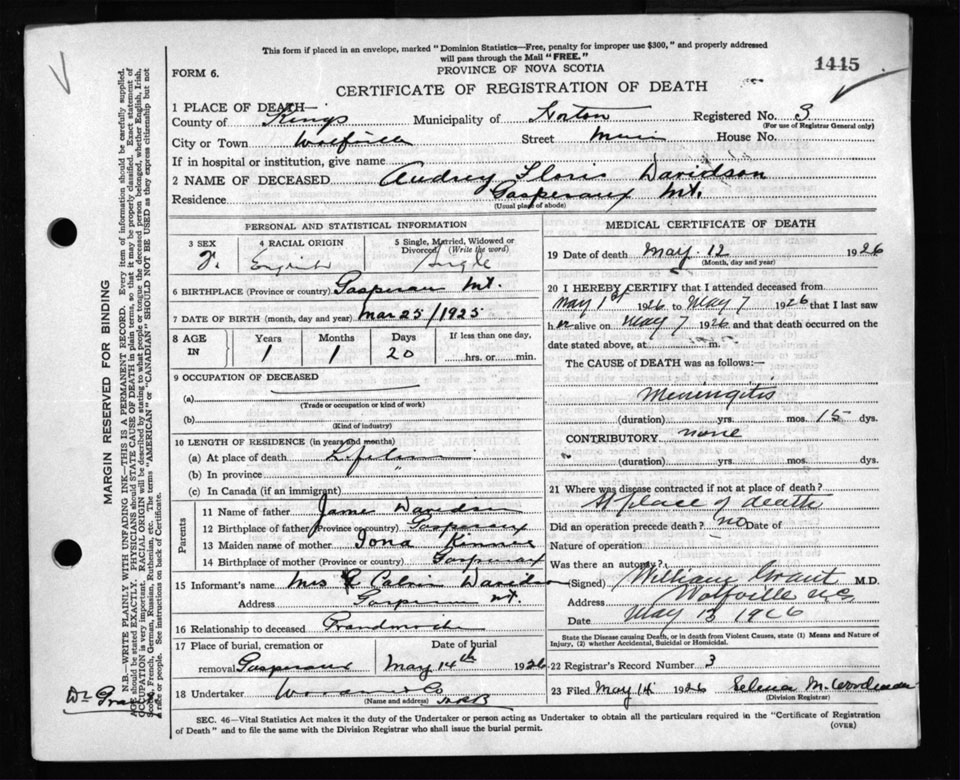 This form if placed in an envelope, marked "Dominion Statistics—Free, penalty for improper use $300," and properly addressed
will pass through the Mail "FREE."
1445
FORM 6.
PROVINCE OF NOVA SCOTIA
CERTIFICATE OF REGISTRATION OF DEATH
1 PLACE OF DEATH—
County of Kings Municipality of Horton Registered No. 3
(For use of Registrar General only)
City or Town Wolfville Street Main House No.
If in hospital or institution, give name
2 NAME OF DECEASED Audrey Davidson
Residence Gaspereaux Mt.
(Usual place of abode)
PERSONAL AND STATISTICAL INFORMATION
3 SEX 4 RACIAL ORIGIN 5 Single, Married, Widowed or
Divorced (Write the word)
F. English Single
6 BIRTHPLACE (Province or country) Gasperau Mt.
7 DATE OF BIRTH (month, day and year) Mar 25/1925
8 AGE IN Years Months Days If less than one day,
1 1 20 hrs. or min.
9 OCCUPATION OF DECEASED
(a)
(Trade or occupation or kind of work)
(b)
(Kind of industry)
10 LENGTH OF RESIDENCE (in years and months)
(a) At place of death Lifetime
(b) In province "
(c) In Canada (if an immigrant)
Parents
11 Name of father James Davidson
12 Birthplace of father (Province or country) Gasperaux
13 Maiden name of mother Iona
14 Birthplace of mother (Province or country) Gasperaux
15 Informant's name Mrs Calvin Davidson
Address Gasperau Mt.
16 Relationship to deceased Grandmother
17 Place of burial, cremation or Date of burial
removal Gasperaux May 14th 1926
18 Undertaker Co
(Name and address)
MEDICAL CERTIFICATE OF DEATH
19 Date of death May 12 1926
(Month, day and year)
20 I HEREBY CERTIFY that I attended deceased from
May 1st 1926 to May 7 1926 that I last saw
her alive on May 7 1926 and that death occurred on the
date stated above, at m.
The CAUSE OF DEATH was as follows:—
Meningitis
(duration) yrs. mos. 15 dys.
CONTRIBUTORY none
(duration) yrs. mos. dys.
21 Where was disease contracted if not at place of death?
At place of death
Did an operation precede death? no Date of
Nature of operation
Was there an autopsy?
(Signed) William Grant M.D.
Address Wolfville N.S.
Date May 13 1926
State the Disease causing Death, or in death from Violent Causes, state (1) Means and Nature of
Injury, (2) whether Accidental, Suicidal or Homicidal.
22 Registrar's Record Number 3
23 Filed May 14 1926 Selena M.
(Division Registrar)
SEC. 46—Vital Statistics Act makes it the duty of the Undertaker or person acting as Undertaker to obtain all the particulars required in the "Certificate of Registration
of Death" and to file the same with the Division Registrar who shall issue the burial permit.
(OVER)
MARGIN RESERVED FOR BINDING
N.B.—WRITE PLAINLY WITH UNFADING INK—THIS IS A PERMANENT RECORD. Every item of information should be carefully supplied.
AGE should be stated EXACTLY. PHYSICIANS should STATE CAUSE OF DEATH in plain terms, so that it may be properly classified. Exact statement of
OCCUPATION is very important. RACIAL ORIGIN will be described by stating to what people or tongue the deceased person belonged, whether English, Irish,
Scotch, French, German, Russian, Ruthenian, etc. The terms "AMERICAN" or "CANADIAN" SHOULD NOT BE USED as they express citizenship but not
a race or people. See instructions on back of Certificate.
Dr Grant